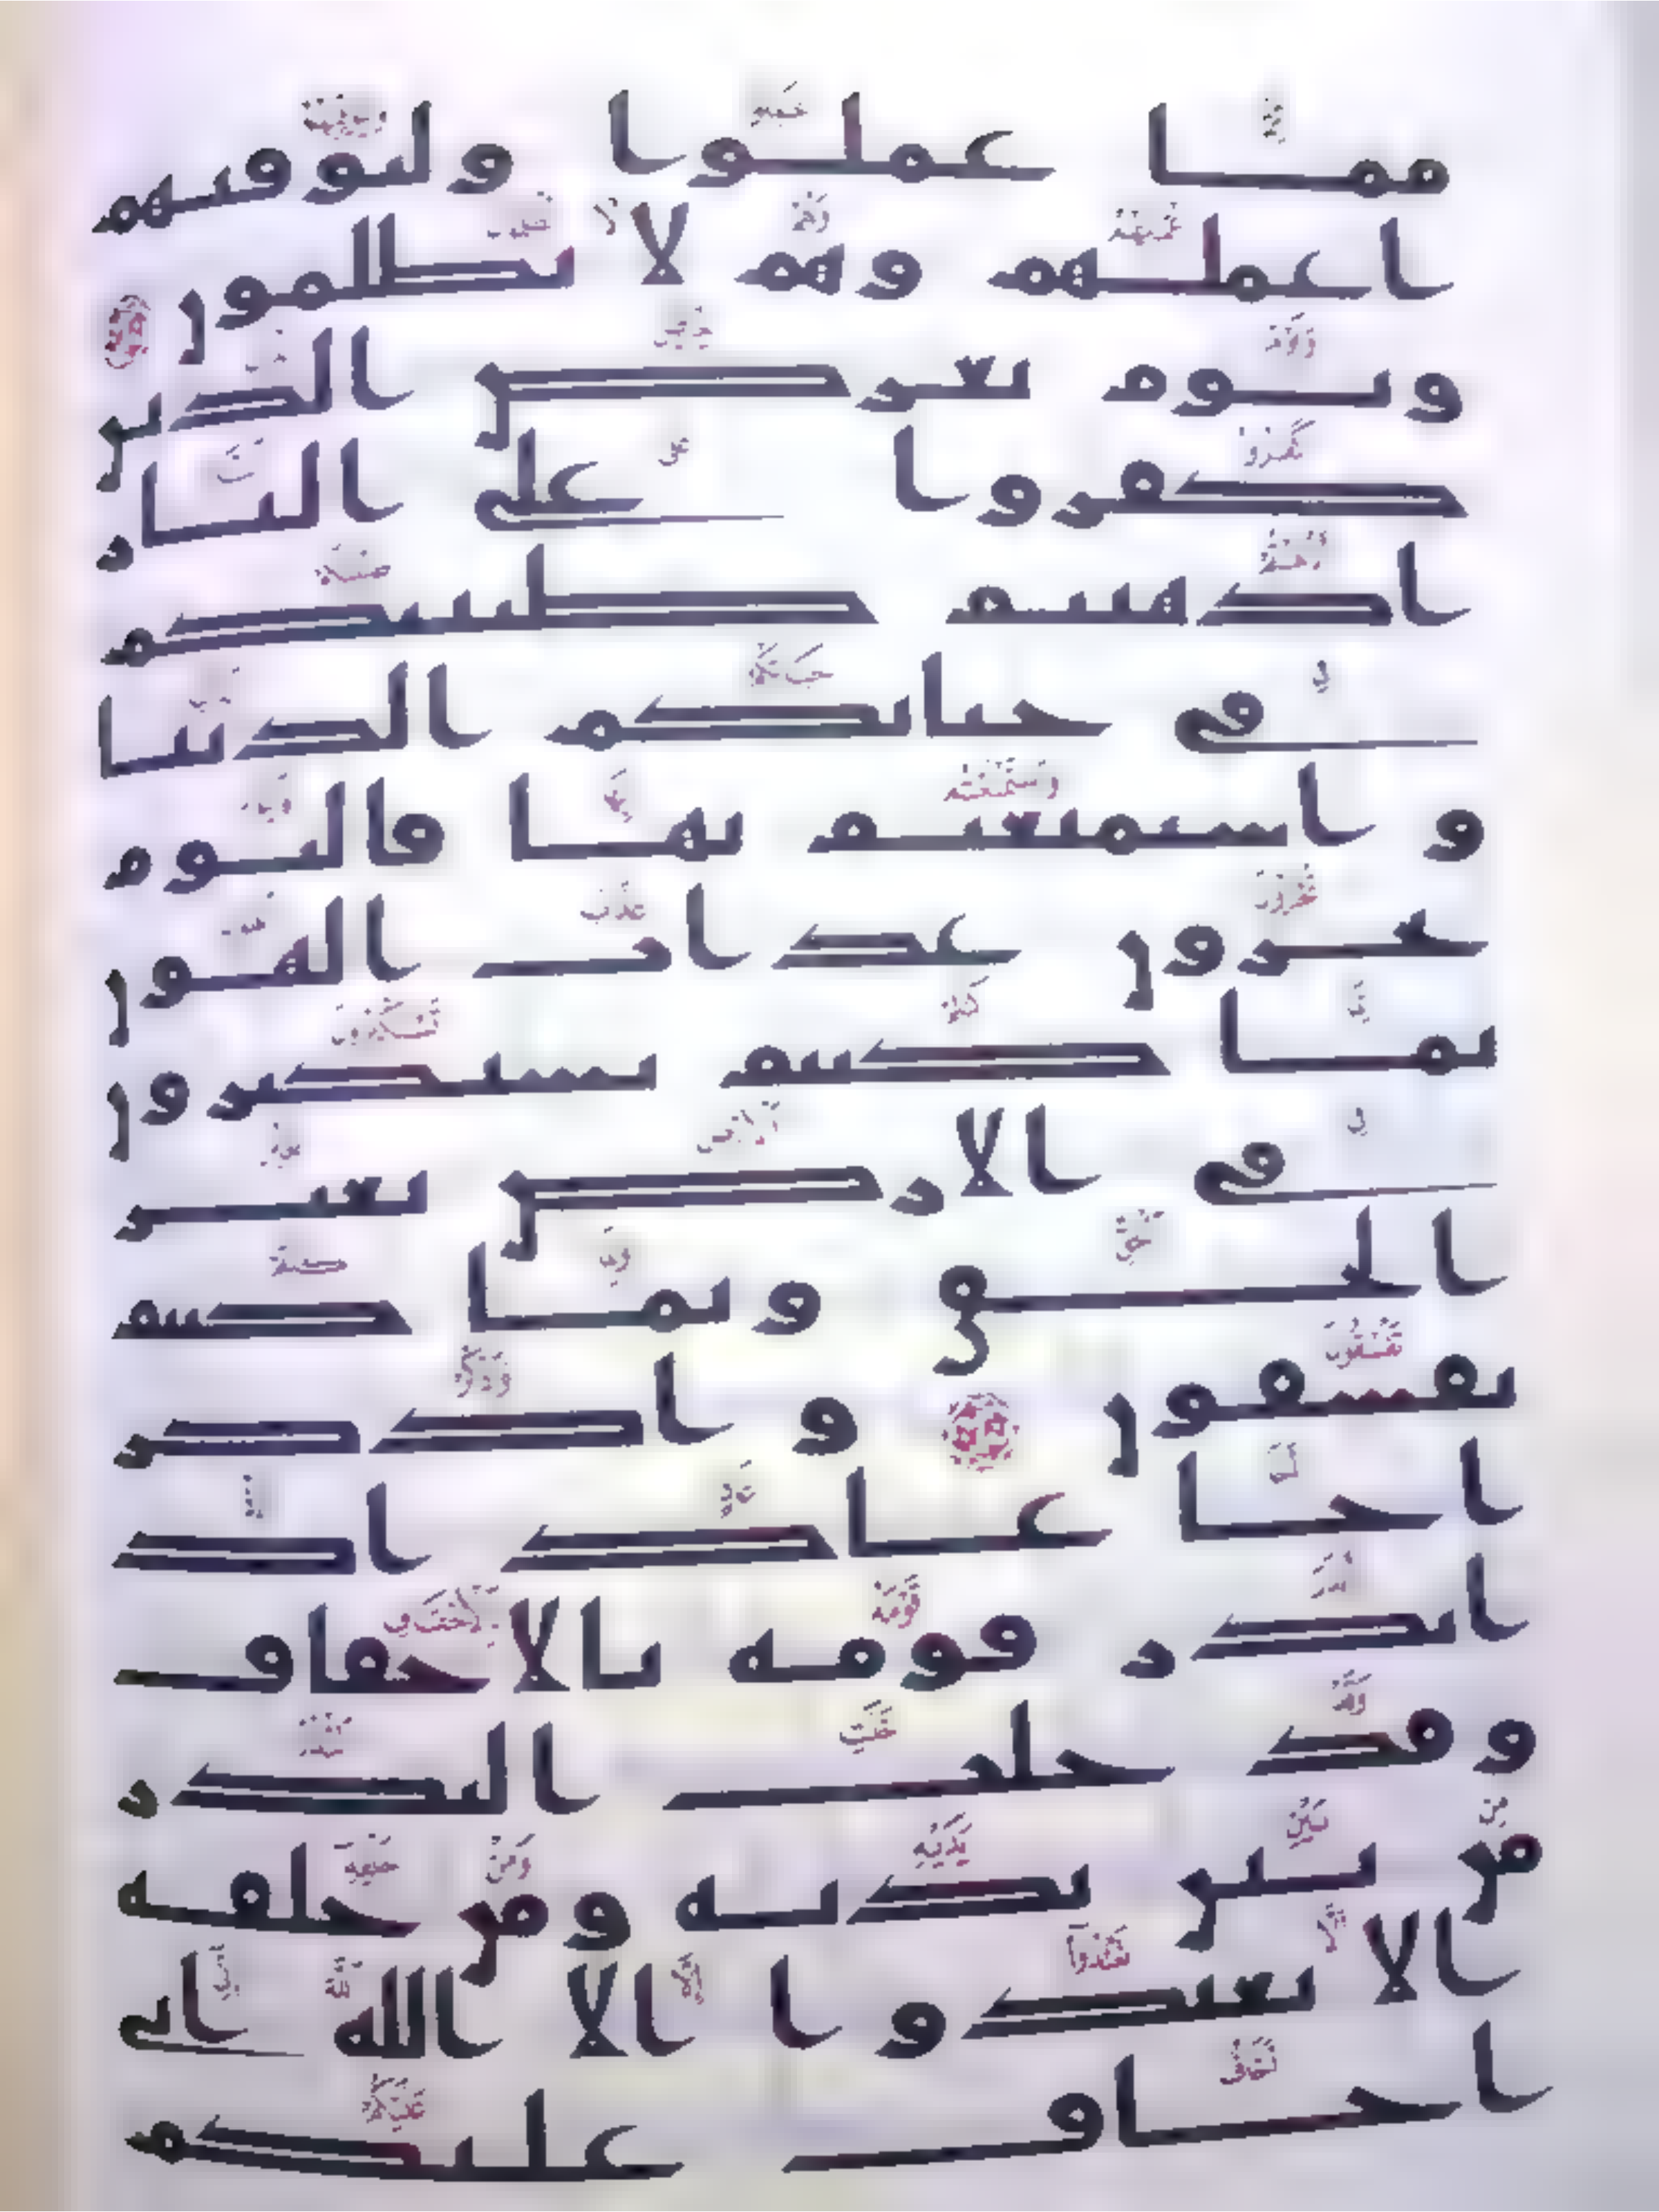 مما عملوا وليوفيهم
اعملهم وهم لا يظلمون
ويوم يعرض الذين
كفروا على النار
اذهبتم طيبتكم
في حياتكم الدنيا
و استمتعتم بها فاليوم
تجزون عذاب الهون
بما كنتم تستكبرون
في الارض بغير
الحق وبما كنتم
تفسقون و اذكر
اخا عاد اذ
انذر قومه بالاحقاف
وقد خلت النذر
من بين يديه ومن خلفه
الا تعبدوا الا الله اني
اخاف عليكم